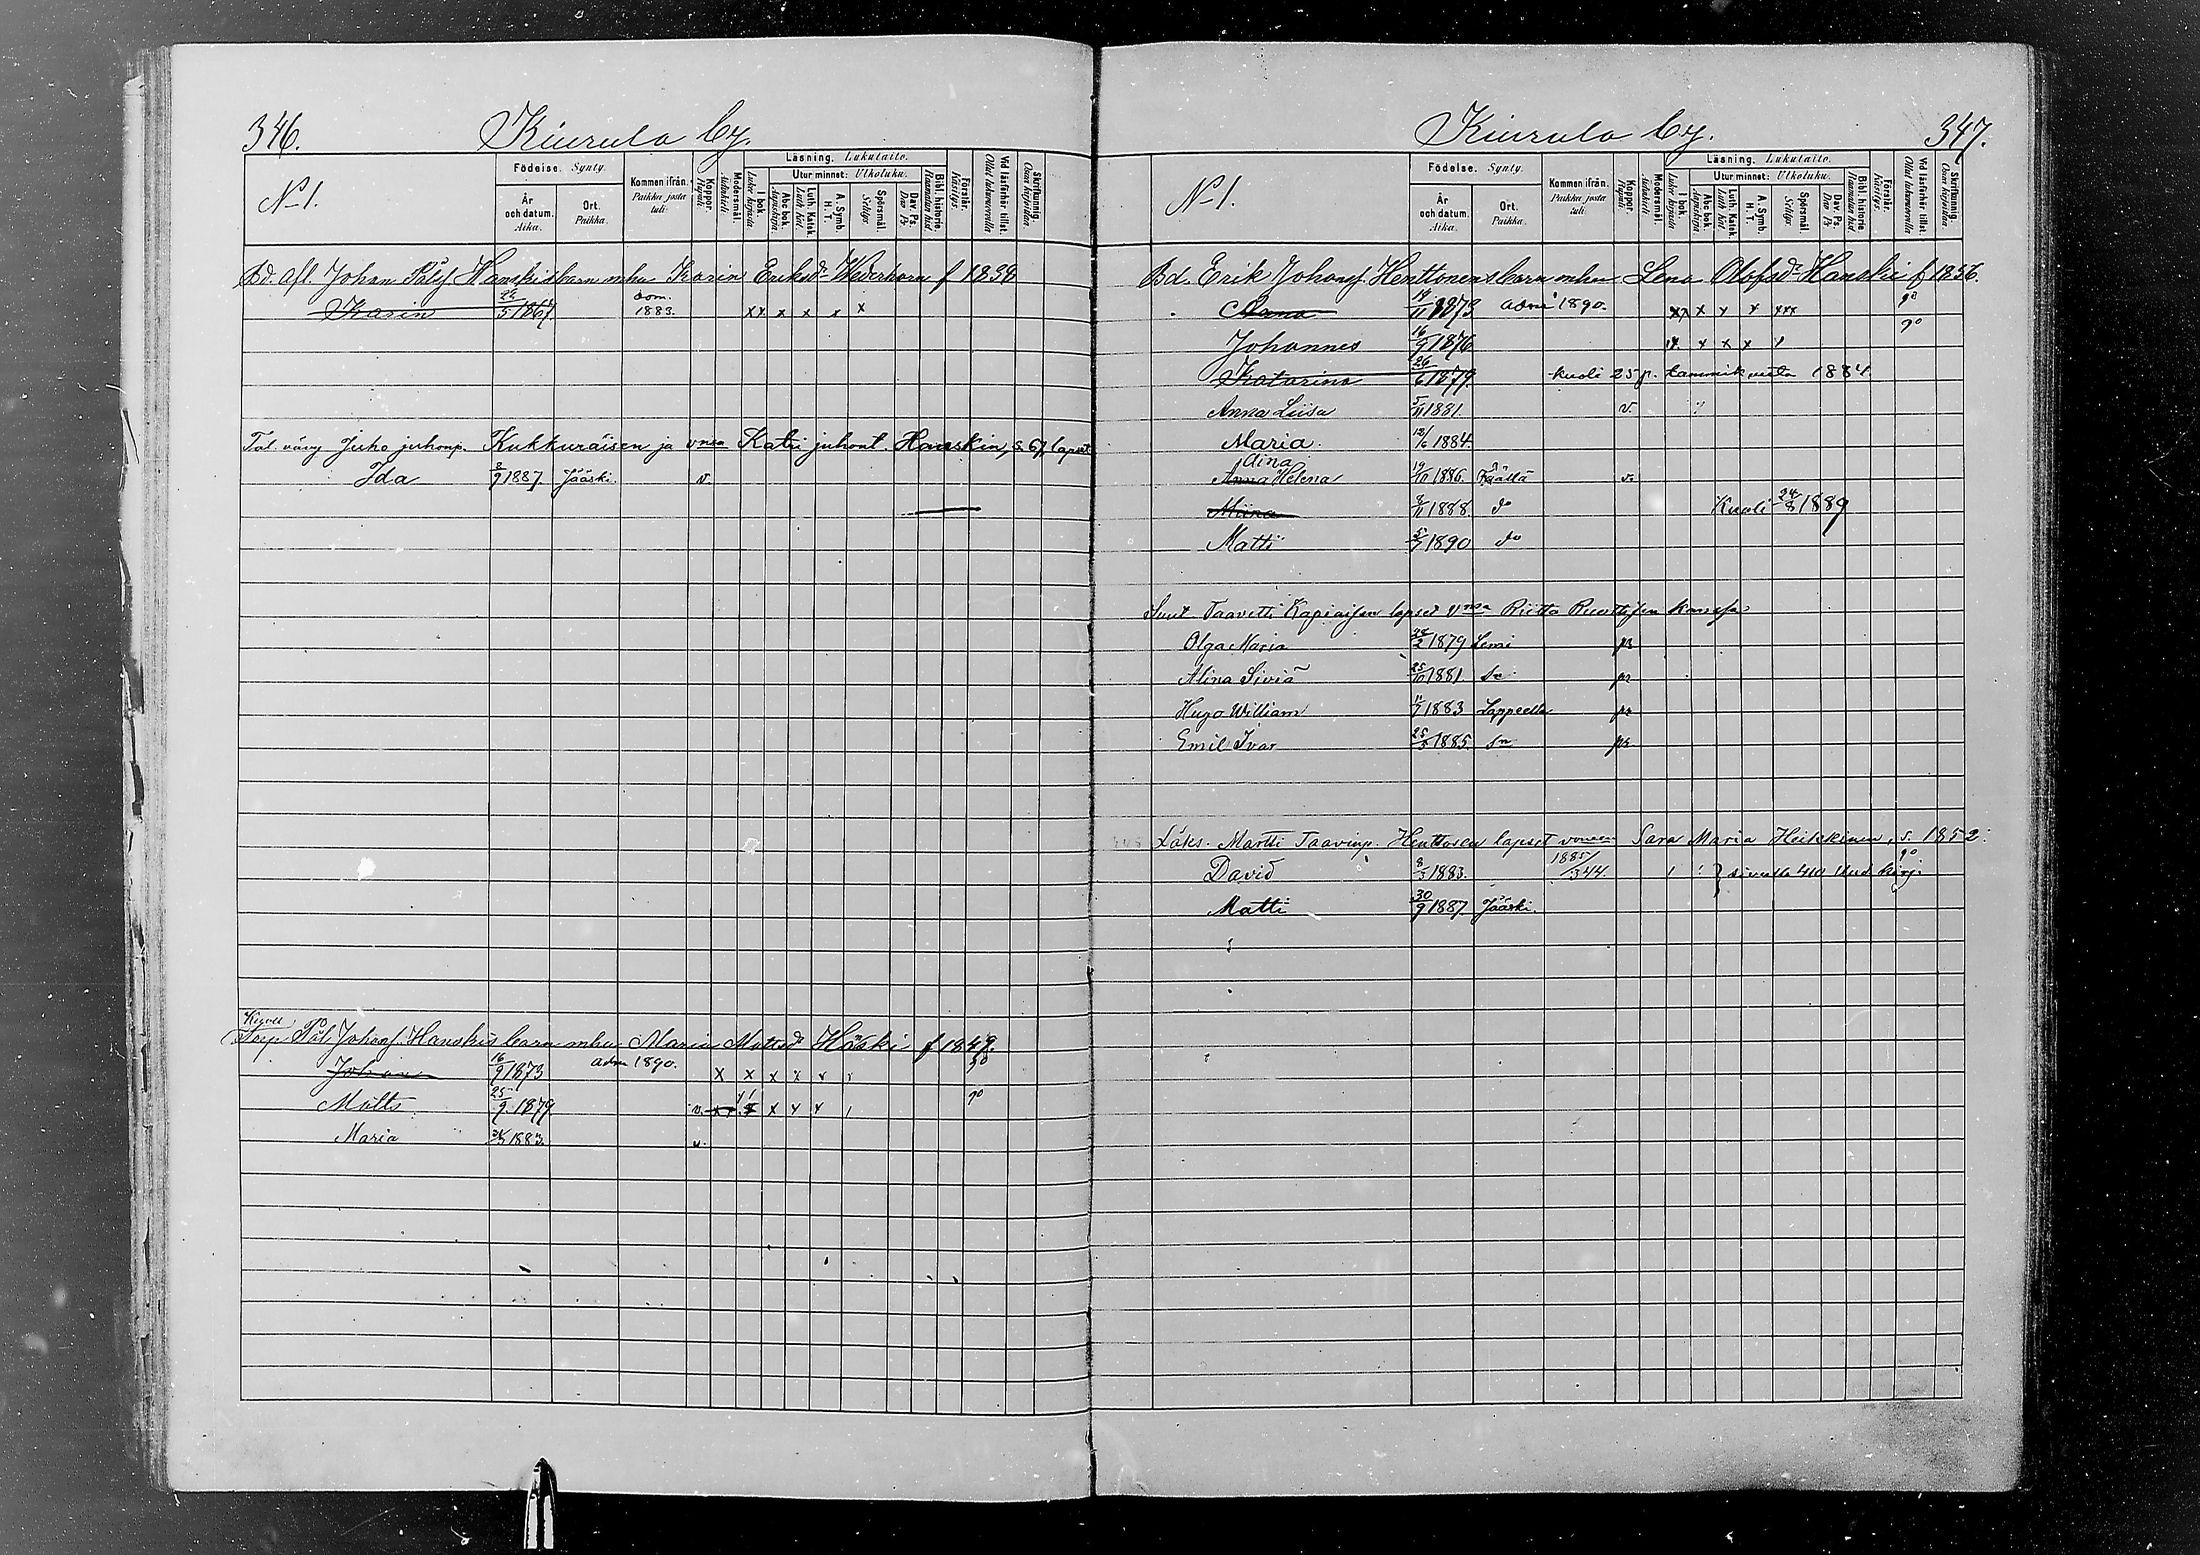 346.
Kiurula by.
N 1.
Födelse. Synty.
År och datum. Aika.
Ort. Paikka.
Kommen ifrån. Paikka josta tuli.
Koppor. Rupuli
Modersmål. Äidinkieli
Läsning. Lukutaito.
I bok. Luku kirjasta
Utur minnet: Ulkoluku.
Abc bok. Aapiskirja
Luth. Katek. Luth. kat.
A. Symb. H. T.
Spörsmål. Selitys.
Dav. Ps. Dav Ps
Bibl historie. Raamatun hist
Förstår. Käsitys.
Vid läsförhör tillst. Ollut lukuvuorolla
Skrifkunnig. Osaa kirjoittaa
Bd. afl. Johan Pålss. Hanskis barn m hu Karin Eriksdr f 1838
Karin 5 1867. dom. 1883. xx x x x x
Tal. vävy Juho juhonp. Kukkuräisen ja vmon Katri juhont. Hanskin, s. 67, lapset
Ida 8/9 1887. Jääski. v.
Pål Johanss. Hanskis barn m hu Maria Mattsdr f 1849.
Johan 16/9 1873 adm 1890. x x x x x 90
Matts 25/9 1879 v. x x x 90
Maria 1883. v.
347.
Kiurula by.
N 1.
Födelse. Synty.
År och datum. Aika.
Ort. Paikka.
Kommen ifrån. Paikka josta tuli.
Koppor. Rupuli
Modersmål. Äidinkieli
Läsning. Lukutaito.
I bok. Luku kirjasta
Utur minnet: Ulkoluku.
Abc bok. Aapiskirja
Luth. Katek. Luth kat.
A. Symb. H. T.
Spörsmål. Selitys.
Dav. Ps. Dav Ps
Bibl historie. Raamatun hist
Förstår. Käsitys.
Vid läsförhör tillst. Ollut lukuvuorolla
Skrifkunnig. Osaa kirjoittaa
Bd. Erik Johanss. Henttonens barn m hu Lena Olofsdr Hanski f 1856.
14/11 1873 adm 1890. xx x x x xxx 90
Johannes 16/9 1876 x x x 90
Katarina 26/6 1879 kuoli 25 p. tammikuuta 1884.
Anna Liisa 5/11 1881. v.
Maria. 12/6 1884.
Aina
Anna Helena 19/10 1886. Täällä v.
Miina 8/11 1888 do Kuoli 24/8 1889
Matti 5/7 1890 do
Suut. Taavetti Kapiaisen lapset vmon Riitta Ruottisen kanssa
Olga Maria 28/2 1879 Lemi pr
Alina Siviä 25/10 1881. sn pr
Hugo William 11/7 1883 Lappeella pr
Emil Ivar 25/5 1885 sn pr
Läks. Martti Taavinp. Henttosen lapset vmoneen Sara Maria Heikkinen, s. 1852.
David 8/3 1883. 1885/344. sivulle 410 Uud kirj. 90
Matti 30/9 1887 Jääski.